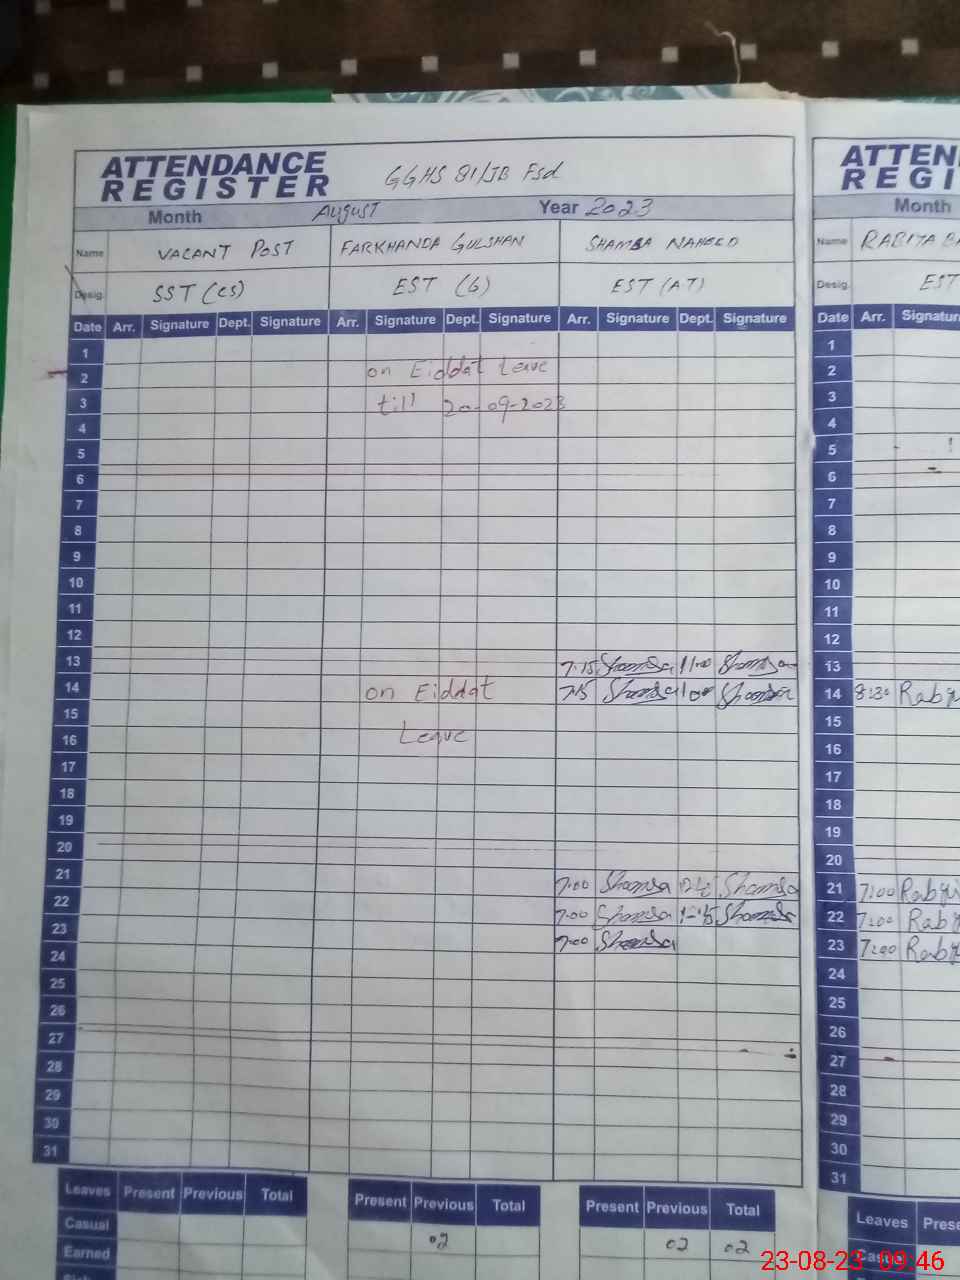 ATTENDANCE
REGISTER
GGHS 81/JB Fsd
Month August Year 2023
Name VACANT POST FARKHANDA GULSHAN SHAMSA NAHEED
Desig. SST (CS) EST (G) EST (AT)
Date Arr. Signature Dept. Signature Arr. Signature Dept. Signature Arr. Signature Dept. Signature
1
2 on Eiddat Leave
3 till 20-09-2023
4
5
6
7
8
9
10
11
12
13 7.15 Shamsa 11:00 Shamsa
14 on Eiddat 7.15 Shamsa Shamsa
15
16 Leave
17
18
19
20
21 7.00 Shamsa Shamsa
22 7.00 Shamsa 1-15 Shamsa
23 7.00 Shamsa
24
25
26
27
28
29
30
31
Leaves Present Previous Total
Present Previous Total
Present Previous Total
Casual 02 02 02
Earned
ATTEN
REGI
Month
Name RABIYA
Desig. EST
Date Arr. Signatur
1
2
3
4
5
6
7
8
9
10
11
12
13
14 8:30
15
16
17
18
19
20
21 7:00
22 7:00
23 7:00
24
25
26
27
28
29
30
31
Leaves Prese
Casual
23-08-23 09:46